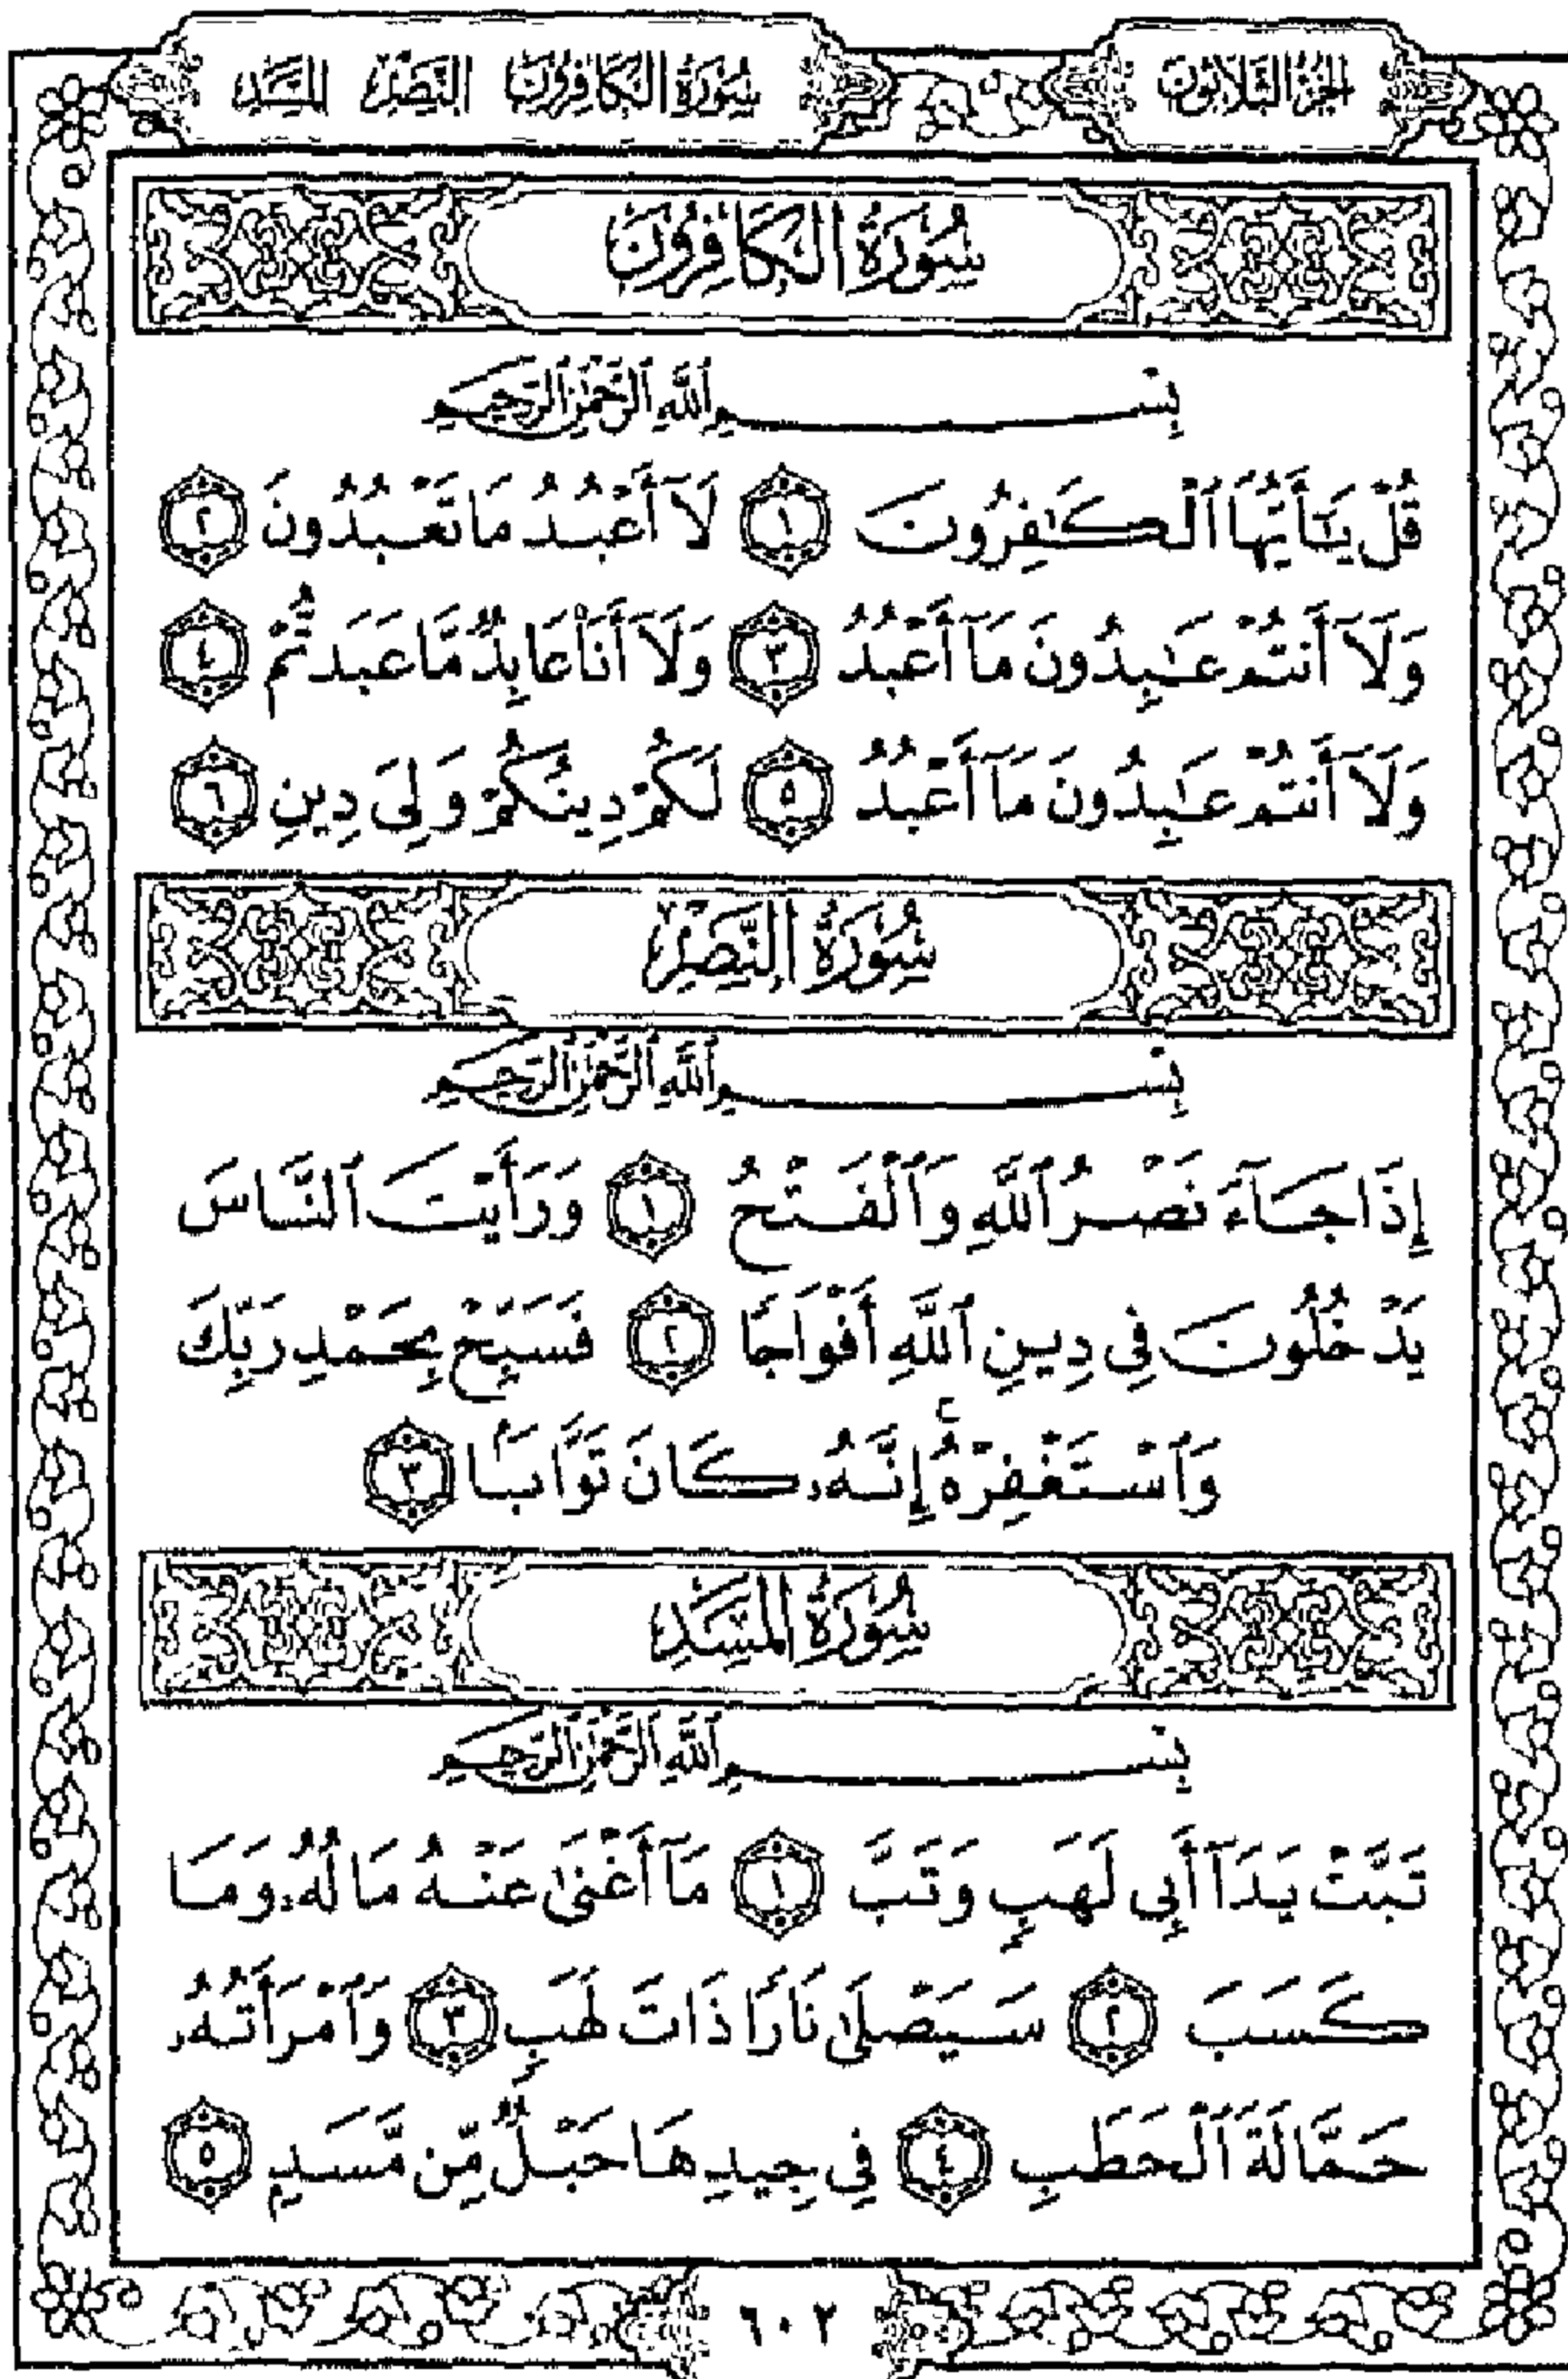 الجزء الثلاثون
سورة الكافرون النصر المسد
سُورَةُ الكَافِرُونَ
بِسْمِ ٱللَّهِ ٱلرَّحْمَٰنِ ٱلرَّحِيمِ
قُلْ يَٰٓأَيُّهَا ٱلْكَٰفِرُونَ ١ لَآ أَعْبُدُ مَا تَعْبُدُونَ ٢
وَلَآ أَنتُمْ عَٰبِدُونَ مَآ أَعْبُدُ ٣ وَلَآ أَنَا۠ عَابِدٌ مَّا عَبَدتُّمْ ٤
وَلَآ أَنتُمْ عَٰبِدُونَ مَآ أَعْبُدُ ٥ لَكُمْ دِينُكُمْ وَلِىَ دِينِ ٦
سُورَةُ النَّصْرِ
بِسْمِ ٱللَّهِ ٱلرَّحْمَٰنِ ٱلرَّحِيمِ
إِذَا جَآءَ نَصْرُ ٱللَّهِ وَٱلْفَتْحُ ١ وَرَأَيْتَ ٱلنَّاسَ
يَدْخُلُونَ فِى دِينِ ٱللَّهِ أَفْوَاجًا ٢ فَسَبِّحْ بِحَمْدِ رَبِّكَ
وَٱسْتَغْفِرْهُ ۚ إِنَّهُۥ كَانَ تَوَّابًۢا ٣
سُورَةُ المَسَدِ
بِسْمِ ٱللَّهِ ٱلرَّحْمَٰنِ ٱلرَّحِيمِ
تَبَّتْ يَدَآ أَبِى لَهَبٍ وَتَبَّ ١ مَآ أَغْنَىٰ عَنْهُ مَالُهُۥ وَمَا
كَسَبَ ٢ سَيَصْلَىٰ نَارًا ذَاتَ لَهَبٍ ٣ وَٱمْرَأَتُهُۥ
حَمَّالَةَ ٱلْحَطَبِ ٤ فِى جِيدِهَا حَبْلٌ مِّن مَّسَدٍۭ ٥
٦٠٢